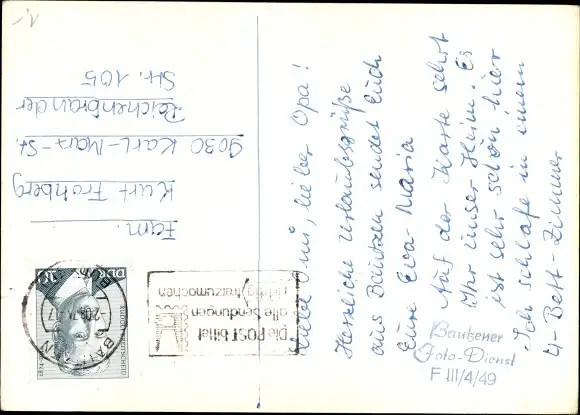 1,-
Liebe Omi, lieber Opa!
Herzliche Urlaubsgrüße
aus Bautzen sendet Euch
Eure Eva-Maria
Auf der Karte seht
Ihr unser Heim. Es
ist sehr schön hier
Ich schlafe in einem
4-Bett-Zimmer
Fam.
Kurt Frohberg
9030 Karl-Marx-St.
Reichenbrander
Str. 105
Die POST bittet
alle Sendungen
richtig freizumachen
BAUTZEN
DDR
Bautzener
Foto-Dienst
F III/4/49